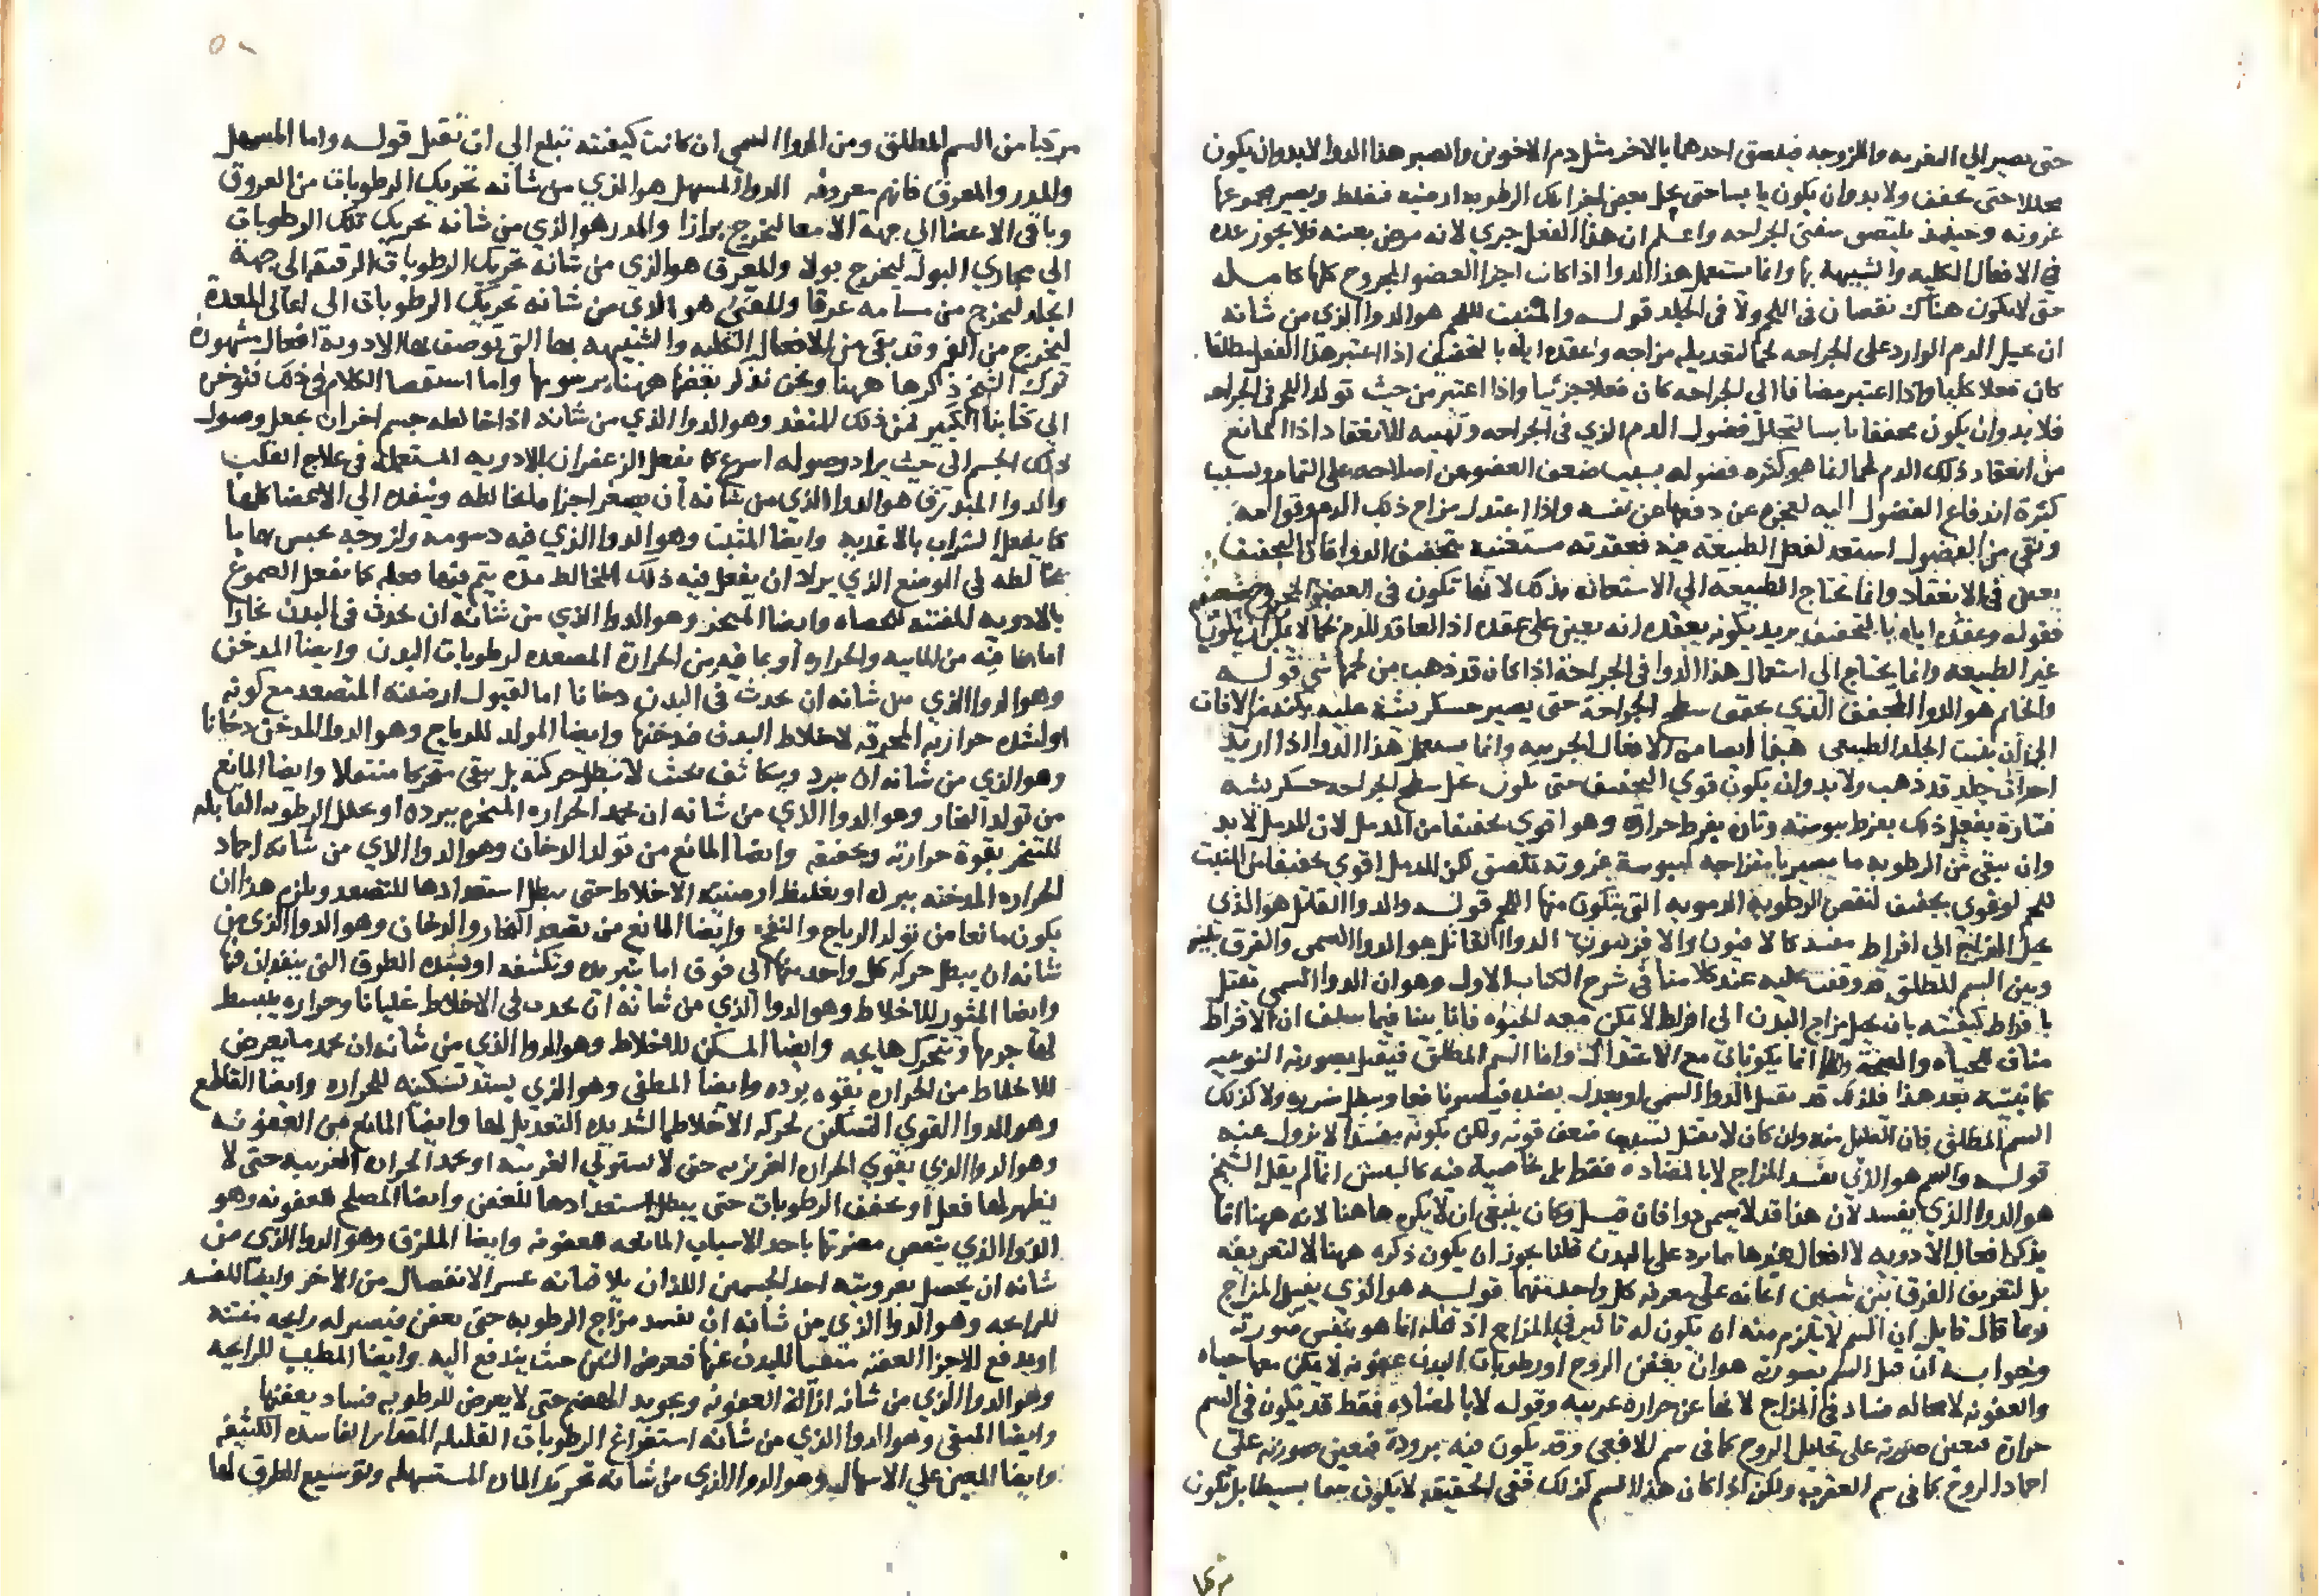 حتى يصير الي التغريه واللزوجه فيلصق احدهما بالاخر مثل دم الاخوين والصبر هذا الدوا لابد وان يكون
مجللا حتى يجفف ولا بد وان يكون يابسا حتى يحيل بعض اجزا تلك الرطوبه ارضيه فتغلظ ويصير مجموعها
غرويه وحينئذ يلتصق شفتي الجراحه واعلم ان هذا الفعل جزي لانه مرض بعينه فلا يجوز عده
في الافعال الكليه والشبيهة بها وانما يستعمل هذا الدوا اذا كانت اجزا العضو المجروح كلها كامله
حتى لا يكون هناك نقصان في اللحم ولا في الجلد قوله والمنبت للحم هو الدوا الذي من شانه
ان يحيل الدم الوارد على الجراحه لحما لتعديله مزاجه وعقده اياه بالتجفيف اذا اعتبر هذا الفعل مطلقا
كان فعلا كليا واذا اعتبر مضافا الى الجراحه كان فعلا جزئيا واذا اعتبر من حيث تولد اللحم في الجراحه
فلا بد وان يكون مجففا يابسا لتحلل فضول الدم الذي في الجراحه وتهييه للانعقاد اذ المانع
من انعقاد ذلك الدم لحما انما هو كثره فضوله بسبب ضعف العضو عن اصلاحه على التمام وبسبب
كثرة اندفاع الفضول اليه لعجزه عن دفعها عن نفسه واذا اعتدل مزاج ذلك الدم وقوامه
ونقي من الفضول استعد لفعل الطبيعة فيه فعقدته مستعينه بتجفيف الدوا فان التجفيف
يعين في الانعقاد وانما تحتاج الطبيعه الي الاستعانه بذلك لانها تكون في العضو المجروح ضعيفه
فقوله وعقده اياه بالتجفيف يريد بكونه يعقده انه يعين على عقده اذ العاقد للدم لحما لا يمكن ان يكون
غير الطبيعه وانما يحتاج الي استعمال هذا الدوا في الجراحة اذا كان قد ذهب من لحمها شي قوله
والخاتم هو الدوا المجفف الذي يجفف سطح الجراحة حتى يصير خشكريشة عليه تكنه من الافات
الى ان ينبت الجلد الطبيعي هذا ايضا من الافعال الجزييه وانما يستعمل هذا الدوا اذا اريد
احداث جلد قد ذهب ولا بد وان يكون قوي التجفيف حتى يكون على سطح الجراحه خشكريشه
فتارة يفعل ذلك بفرط يبوسته وتارة بفرط حرارته وهو اقوى تجفيفا من المدمل لان المدمل لا بد
وان يبقى من الرطوبه ما يصير بامتزاجه ليبوسة غرويته تلصق لكن المدمل اقوى تجفيفا من المنبت
للحم لو قوي تجفيفه لنقص الرطوبه الدمويه التي يتكون منها اللحم قوله والدوا القاتل هو الذي
يحيل المزاج الي افراط مفسد كالافيون والافربيون الدوا القاتل هو الدوا السمي والفرق بينه
وبين السم المطلق قد وقفت عليه عند كلامنا في شرح الكتاب الاول وهو ان الدوا السمي يقتل
بافراط كيفيته بان يحيل مزاج البدن الى افراط لا يمكن معه الحيوه فانا بينا فيما سلف ان الافراط
مناف للحياه والصحة وانما يكونان مع الاعتدال واما السم المطلق فيقتل بصورته النوعيه
كما نبينه بعد هذا فلذلك قد يقتل الدوا السمي او يعدل بضده فيصير نافعا ويبطل ضرره ولا كذلك
السم المطلق فان القليل منه وان كان لا يقتل بسبب ضعف قوته ولكن كونه مفسدا لا يزول عنه
قوله والسم هو الذي يفسد المزاج لا بالمضاده فقط بل بخاصية فيه كالبيش انما لم يقل الشيخ
هو الدوا الذي يفسد لان هذا قد لا يسمى دوا فان قيل وكان ينبغي ان لا يذكره هاهنا لانه ههنا انما
يذكر افعال الادويه لا افعال غيرها مما يرد على البدن قلنا يجوز ان يكون ذكره ههنا لا لتعريفه
بل لتعريف الفرق بين شيين اعانه على معرفة كل واحد منهما قوله هو الذي يفسد المزاج
ربما قال قايل ان السم لا يلزم منه ان يكون له تاثير في المزاج اذ قتله انما هو بنفس صورته
وجوابه ان قتل السم بصورته هو ان يعفن الروح او رطوبات البدن عفونه لا يمكن معها حياه
والعفونه لا محاله فساد في المزاج لانها عن حراره غريبه وقوله لا بالمضاده فقط قد يكون في السم
حرارة تعين صورته على تحليل الروح كما في سم الافعى وقد يكون فيه برودة فتعين صورته على
اجماد الروح كما في سم العقرب ولكن اذا كان هذا السم كذلك ففي الحقيقه لا يكون سما بسيطا بل يكون
مركبا
مركبا من السم المطلق ومن الدوا السمي ان كانت كيفيته تبلغ الي ان تقتل قوله واما المسهل
والمدر والمعرق فانها معروفه الدوا المسهل هو الذي من شانه تحريك الرطوبات من العروق
وباقي الاعضا الى جهة الامعا لتخرج برازا والمدر هو الذي من شانه تحريك تلك الرطوبات
الي مجاري البول ليخرج بولا والمعرق هو الذي من شانه تحريك الرطوبات الرقيقه الى جهة
الجلد لتخرج من مسامه عرقا والمقيئ هو الذي من شانه تحريك الرطوبات الى اعالي المعدة
لتخرج من الفم وقد بقي من الافعال الكليه والشبيهه بها التي توصف بها الادوية افعال مشهورة
ترك الشيخ ذكرها ههنا ونحن نذكر بعضها ههنا برسومها واما استقصا الكلام في ذلك فنوخره
الى كتابنا الكبير فمن ذلك المنفذ وهو الدوا الذي من شانه اذا خالطه جسم اخر ان يجعل وصول
ذلك الجسم الى حيث يراد وصوله اسرع كما يفعل الزعفران بالادويه المستعمله في علاج القلب
والدوا المبذرق هو الدوا الذي من شانه ان يصغر اجزا ما يخالطه وينفذه الي الاعضا كلها
كما يفعل الشراب بالاغذيه وايضا المثبت وهو الدوا الذي فيه دسومه ولزوجه يحبس بها ما
يخالطه في الموضع الذي يراد ان يفعل فيه ذلك المخالط مده يتم فيها فعله كما يفعل الصموغ
بالادويه المفتته للحصاه وايضا المبخر وهو الدوا الذي من شانه ان يحدث في البدن بخارا
اما بما فيه من المائيه والحراره او بما فيه من الحرارة المصعده لرطوبات البدن وايضا المدخن
وهو الدوا الذي من شانه ان يحدث في البدن دخانا اما لقبول ارضيته المتصعد مع كونه
او لشده حرارته المحرقه لاخلاط البدن فتدخنها وايضا المولد للرياح وهو الدوا المدخن دخانا
وهو الذي من شانه ان يبرد ويتكاثف بحيث لا تبطل حركته بل يبقى متحركا منتقلا وايضا المانع
من تولد البخار وهو الدوا الذي من شانه ان يخمد الحراره المبخره ببرده او يحلل الرطوبه القابله
للتبخر بقوة حرارته وتجفيفه وايضا المانع من تولد الدخان وهو الدوا الذي من شانه اجماد
الحراره المدخنه ببرده او تغليظ ارضيته الاخلاط حتى يبطل استعدادها للتصعد ويلزم هذا ان
يكون مانعا من تولد الرياح والنفخ وايضا المانع من تصعد البخار والدخان وهو الدوا الذي من
شانه ان يبطل حركة كل واحد منها الى فوق اما بتبريده وتكثيفه او بسده الطرق التي ينفذان فيها
وايضا المثور للاخلاط وهو الدوا الذي من شانه ان يحدث في الاخلاط غليانا وحراره ينبسط
لها جرمها ويتحرك هايجه وايضا المسكن للاخلاط وهو الدوا الذي من شانه ان يخمد ما يعرض
للاخلاط من الحراره بقوه برده وايضا المطفي وهو الذي يشتد تسكينه للحراره وايضا القاطع
وهو الدوا القوي التسكين لحركه الاخلاط الشديده التعديل لها وايضا المانع من العفونه
وهو الدوا الذي يقوي الحراره الغريزيه حتى لا تستولي الغريبه او يخمد الحراره الغريبه حتى لا
يظهر لها فعل او يجفف الرطوبات حتى يبطل استعدادها للتعفن وايضا المصلح للعفونه وهو
الدوا الذي ينقص مضرتها باحد الاسباب المانعه للعفونه وايضا الملزق وهو الدوا الذي من
شانه ان يجعل بغرويته احد الجسمين اللذان يلاقيانه عسر الانفصال من الاخر وايضا المفسد
للرايحه وهو الدوا الذي من شانه ان يفسد مزاج الرطوبه حتى يعفن فيصير له رايحه منتنه
او يدفع الاجزا العفنه منقيا للبدن عنها فيعرض النتن حيث يندفع اليه وايضا المطيب للرايحه
وهو الدوا الذي من شانه ازالة العفونه وتجويد الهضم حتى لا يعرض للرطوبه فساد يعفنها
وايضا المنقي وهو الدوا الذي من شانه استفراغ الرطوبات القليله المقدار الفاسده الكيفيه
وايضا المعين علي الاسهال وهو الدوا الذي من شانه تحريك المادة المستسهله وتوسيع الطرق لها